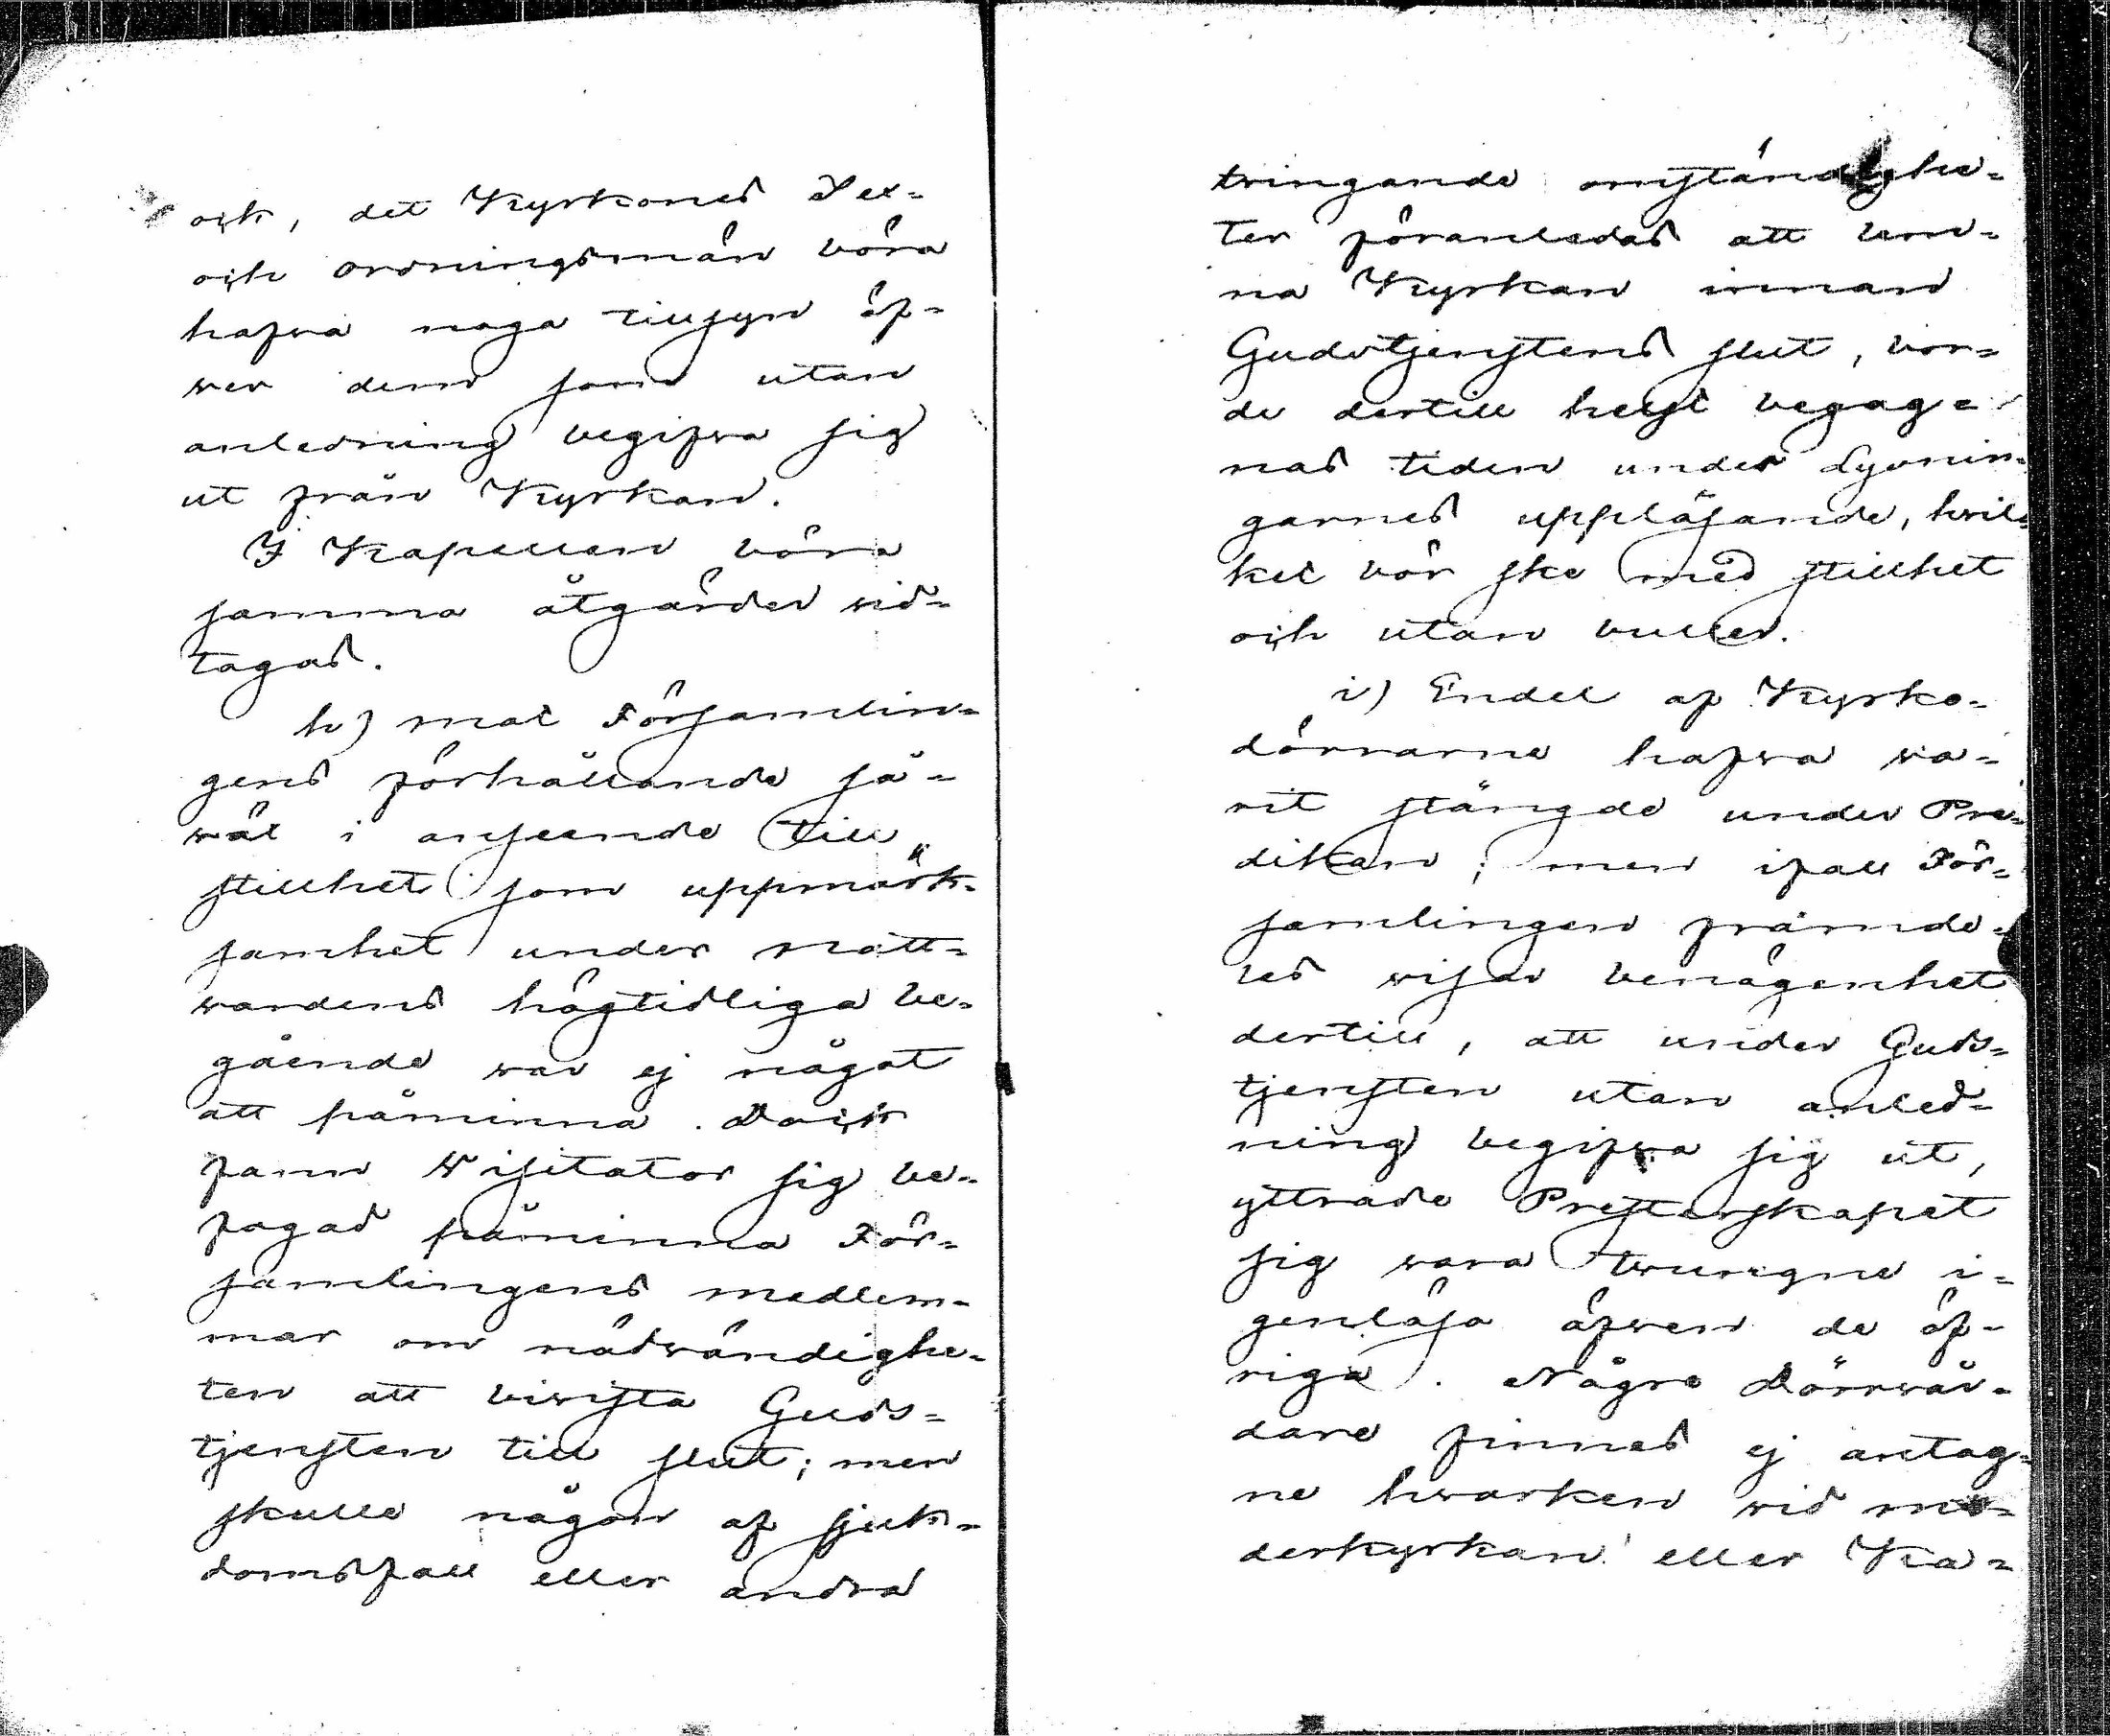 och, det Kyrkones Sex-
och ordningsmän böra
hafva noga tillsyn öf-
wer dem som utan
anledning begifva sig
ut från Kyrkan.
I Kapellen böra
samma åtgärder wid-
tagas.
h) mot Församlin-
gens förhållande så-
wäl i anseende till
stillhet som uppmärk-
samhet under natt-
wardens högtidliga be-
gående war ej något
att påminna. Dock
fann Wisitator sig be-
fogad påminna För-
samlingens medlem-
mar om nödwändighe-
ten att biwista Guds-
tjensten till slut; men
skulle någon af sjuk-
domsfall eller andra
twingande omständighe-
ter föranledas att läm-
na Kyrkan innan
Gudstjenstens slut, bör-
de dertill helst begag-
nas tiden under Lysnin-
garnes uppläsande, hwil-
ket bör ske med stillhet
och utan buller.
i) Endel af Kyrko-
dörrarne hafva wa-
rit stängde under Pre-
dikan; men ifall För-
samlingen främde-
les wisar benägenhet
dertill, att under Guds-
tjensten utan anled-
ning begifva sig ut,
yttrade Presterskapet
sig wara twungne i-
genlåsa äfwen de öf-
riga. Någre Dörrwär-
dare finnes ej antag-
ne hwarken wid mo-
derkyrkan eller Ka-